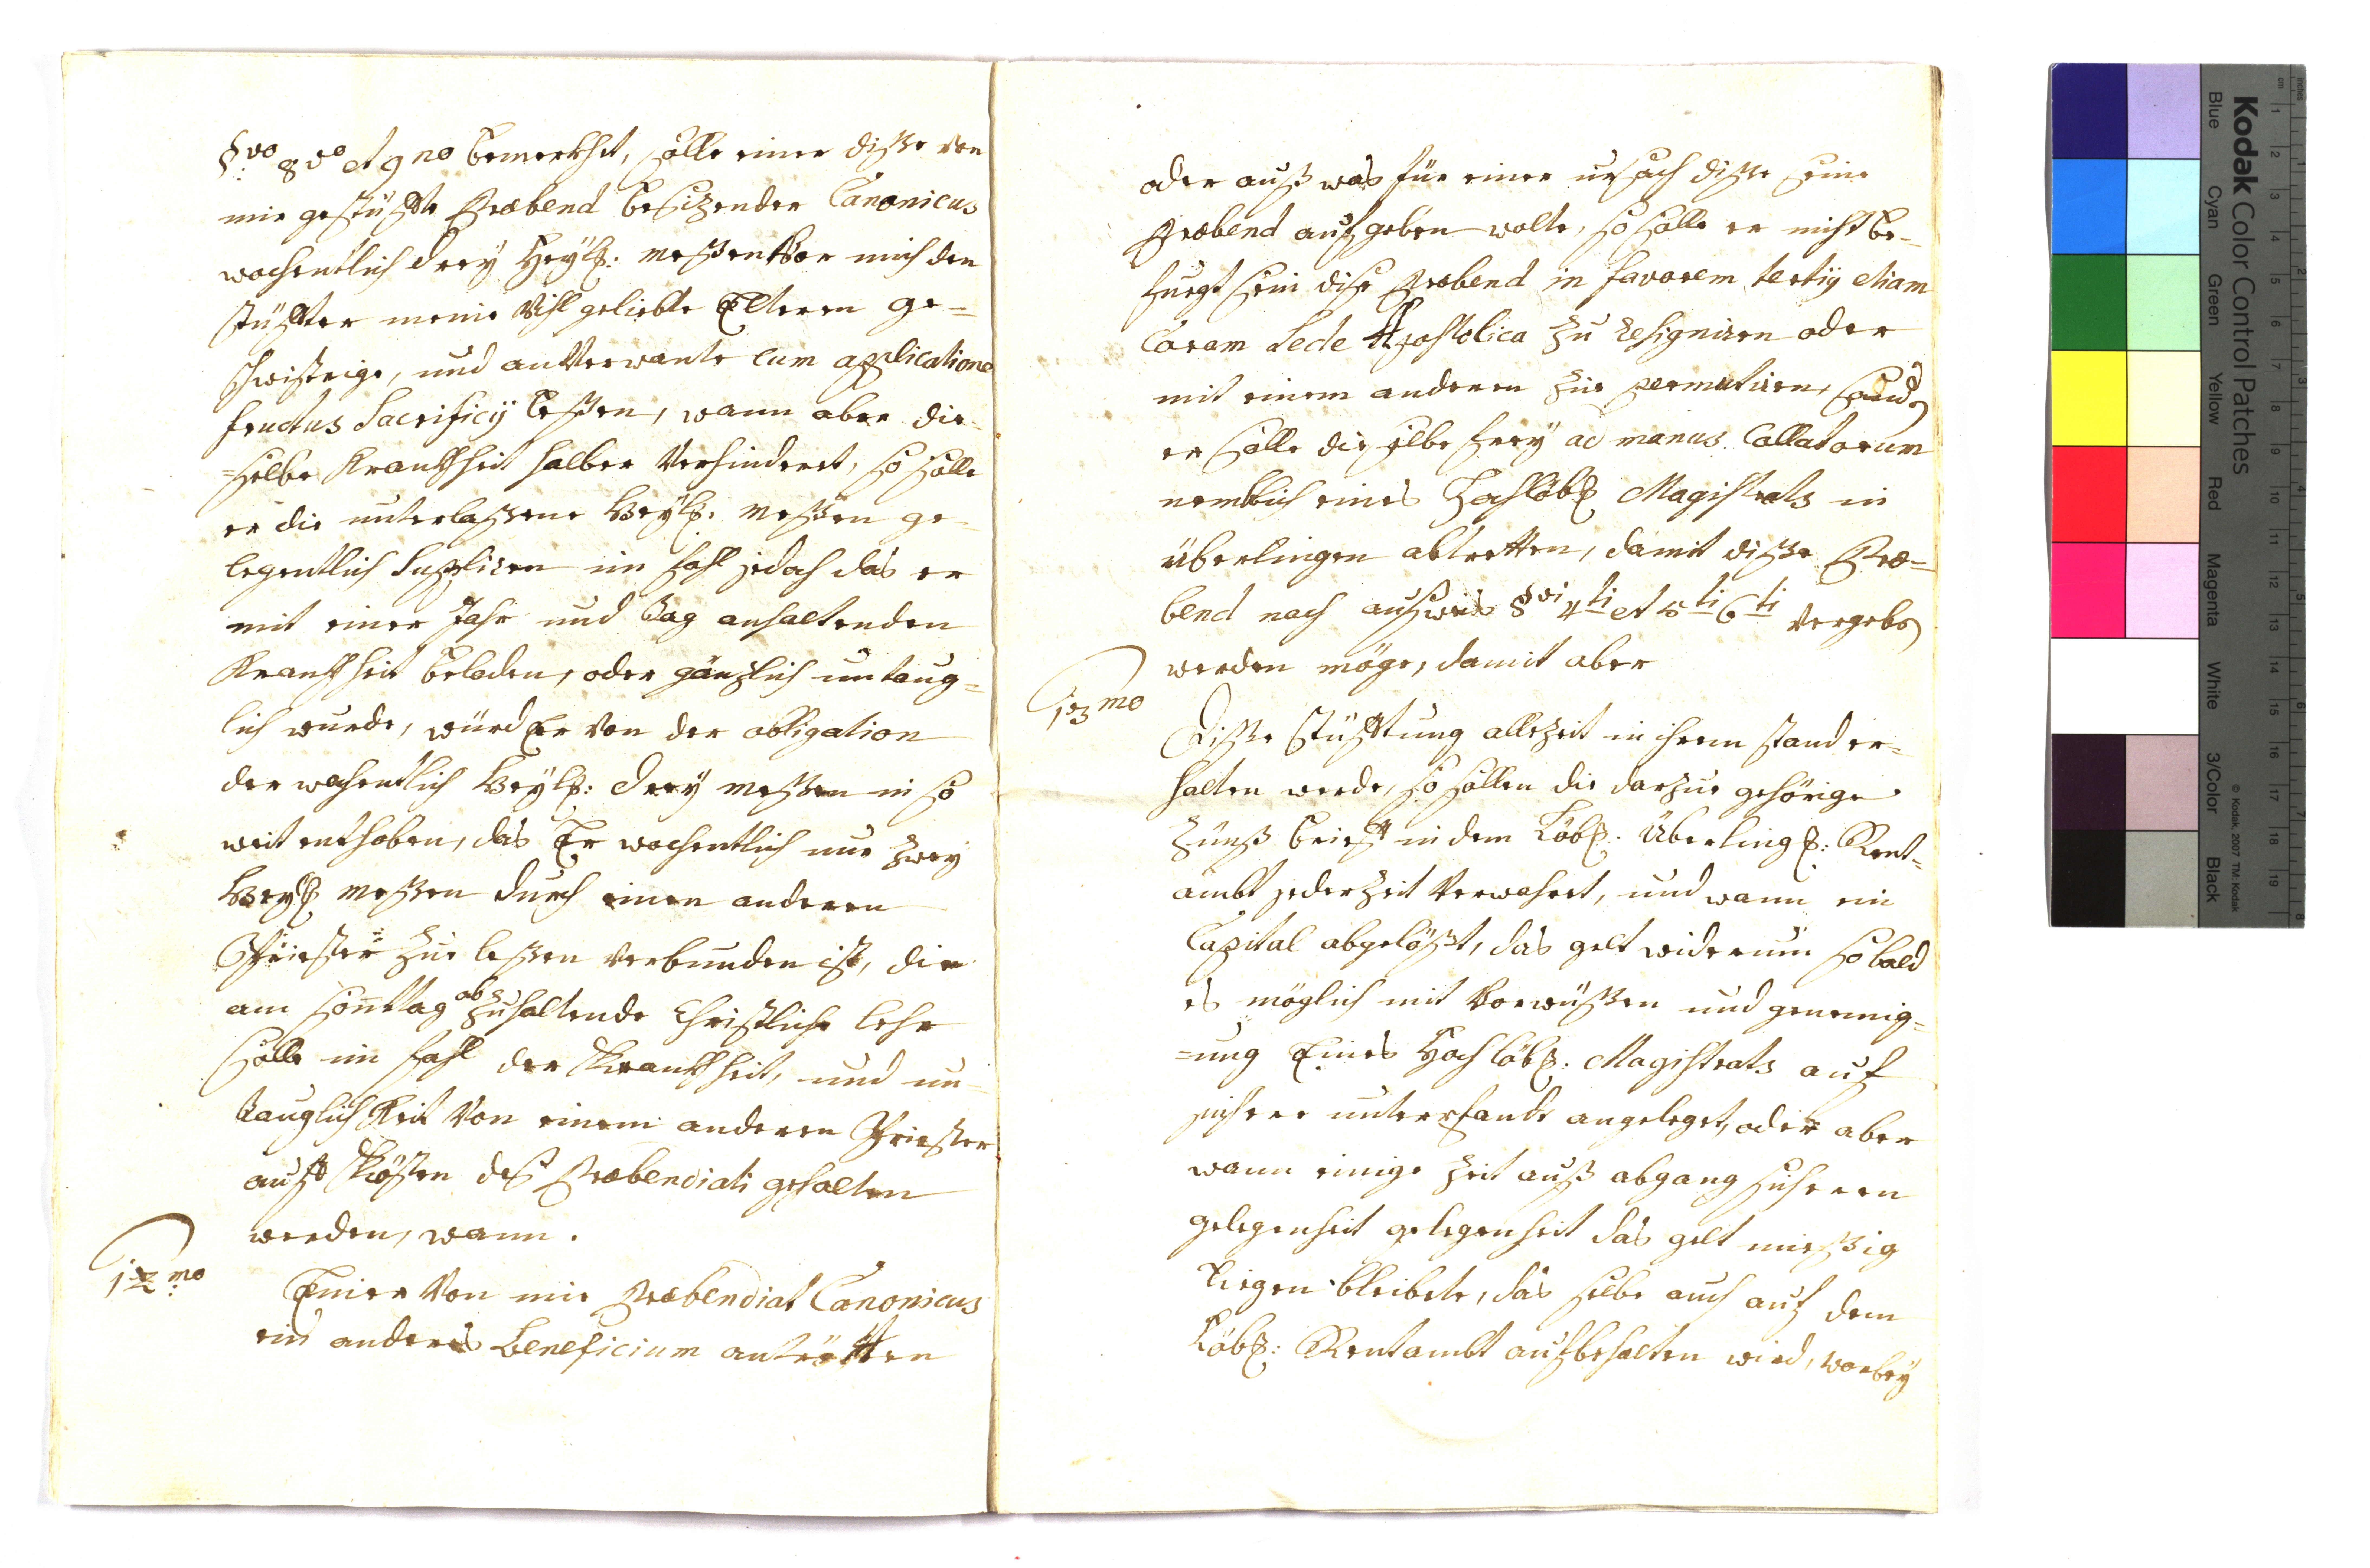 §vo 8vo et 9no bemerkhet, solle einer diße von
mir gestüffte Præbend besizender Canonicus
wochentlich drey Heyl: meßen vor mich den
stüffter meine Vihl geliebte Elteren ge=
schwistrige, und anverwante cum applicatione
fructus Sacrificij leßen, wann aber die
=selbe Krankheit halber Verhinderet, so solle
er die unterlaßene Heyl: meßen ge=
legentlich Suppliren im fahl jedoch das er
mit einer Jahr und tag anhaltenden
Krankheit beladen, oder gänzlich untaug=
lich wurde, würd Er von der obligation
der wochentlich Heyl: drey meßen in so
weit enthoben, das Er wochentlich nur zwey
Heyl meßen durch einen anderen
Priester zue leßen verbunden ist, die
am sontag abzuhaltende Christliche lehr
solle im fahl der Krankheit, und un=
tauglichkeit von einem anderen Priester
auff Kösten deß Præbendiati gehalten
werden, wann.
12mo
Einer von mir Præbendiat Canonicus
ein anderes Beneficium antretten
oder auß was für einer ursach diße seine
Præbend aufgeben wolte, so solle er nicht be=
fuegt sein dise Præbend in favorem tertij etiam
Coram Sede Apostolica zu resigniren oder
mit einem anderen zue permutiren, sond
er solle die selbe frey ad manus Collatorum
nemblich eines Hochlöbl Magistrats in
überlingen abtretten, damit diße Præ=
bend nach außweis §vi 4ti et 5ti 6ti vergeben
werden möge, damit aber
13mo
Diße stüfftung allezeit in ihrem stand er=
halten werde, so sollen die darzue gehörige
Zünß brieff in dem Löbl: Überling: Rent=
ambt jederzeit verwahret, und wann ein
Capital abgelößt, das gelt widerum so bald
es möglich mit vorwüßen und genemig=
=ung Eines Hochlöbl: Magistrats auf
sichere unterpfande angeleget, oder aber
wann einige Zeit auß abgang sicheren
gelegenheit gelegenheit das gelt müeßig
Ligen bleibete, das selbe auch auf dem
Löbl: Rentambt aufbehalten wird, worbey
Kodak Color Control Patches
Blue Cyan Green Yellow Red Magenta White 3/Color Black
© Kodak, 2007 TM: Kodak
inches 1 2 3 4 5 6 7 8
cm 1 2 3 4 5 6 7 8 9 10 11 12 13 14 15 16 17 18 19